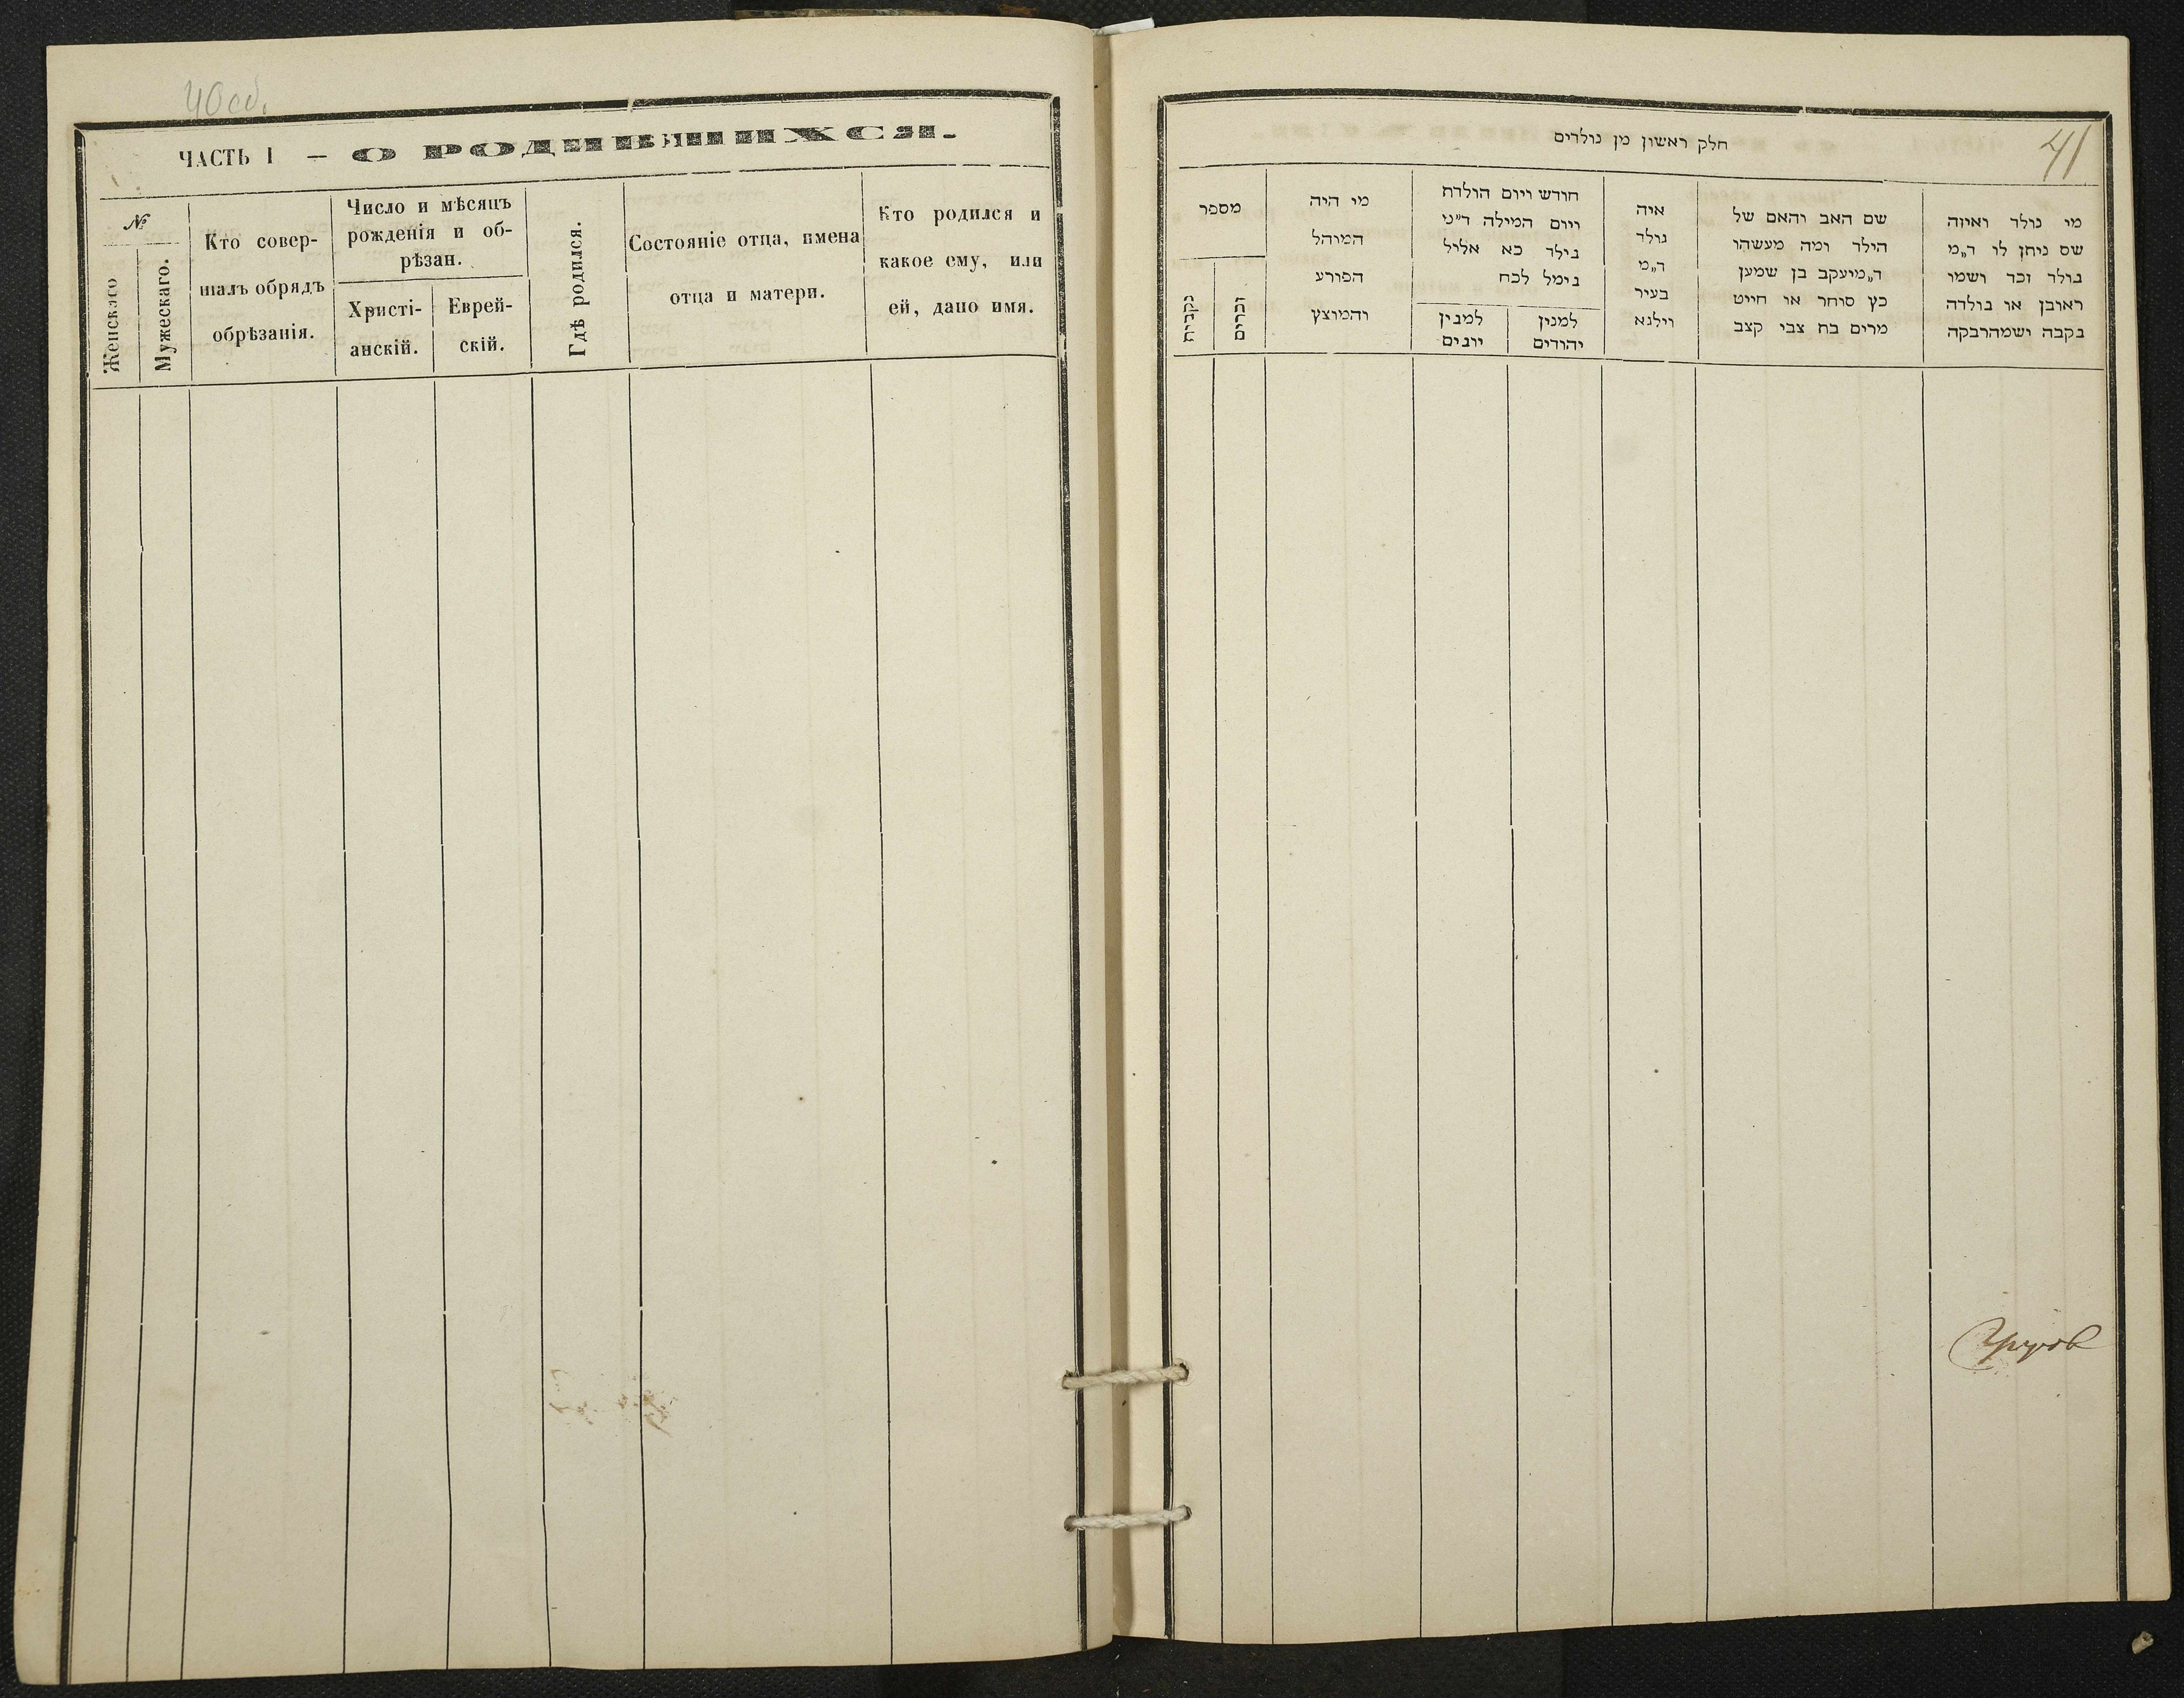 40 об.
ЧАСТЬ I — О РОДИВШИХСЯ.
№
Женскаго
Мужескаго.
Кто совер-
шалъ обрядъ
обрѣзанія.
Число и мѣсяцъ
рожденія и об-
рѣзан.
Христі-
анскій.
Еврей-
скій.
Гдѣ родился.
Состояніе отца, имена
отца и матери.
Кто родился и
какое ему, или
ей, дано имя.
41
חלק ראשון מן נולדים
מספר
נקבות
זכרים
מי היה
המוהל
הפורע
והמוצץ
חודש ויום הולדת
ויום המילה ד״ני
נילד כא אליל
נימל לכח
למנין
יונים
למנין
יהודים
איה
נולד
ד״מ
בעיר
וילנא
שם האב והאם של
הילד ומה מעשהו
ד״מ יעקב בן שמען
כץ סוחר או חייט
מרים בח צבי קצב
מי נולד ואיזה
שם ניתן לו ד״מ
נולד זכר ושמו
ראובן או נולדה
נקבה ושמה רבקה